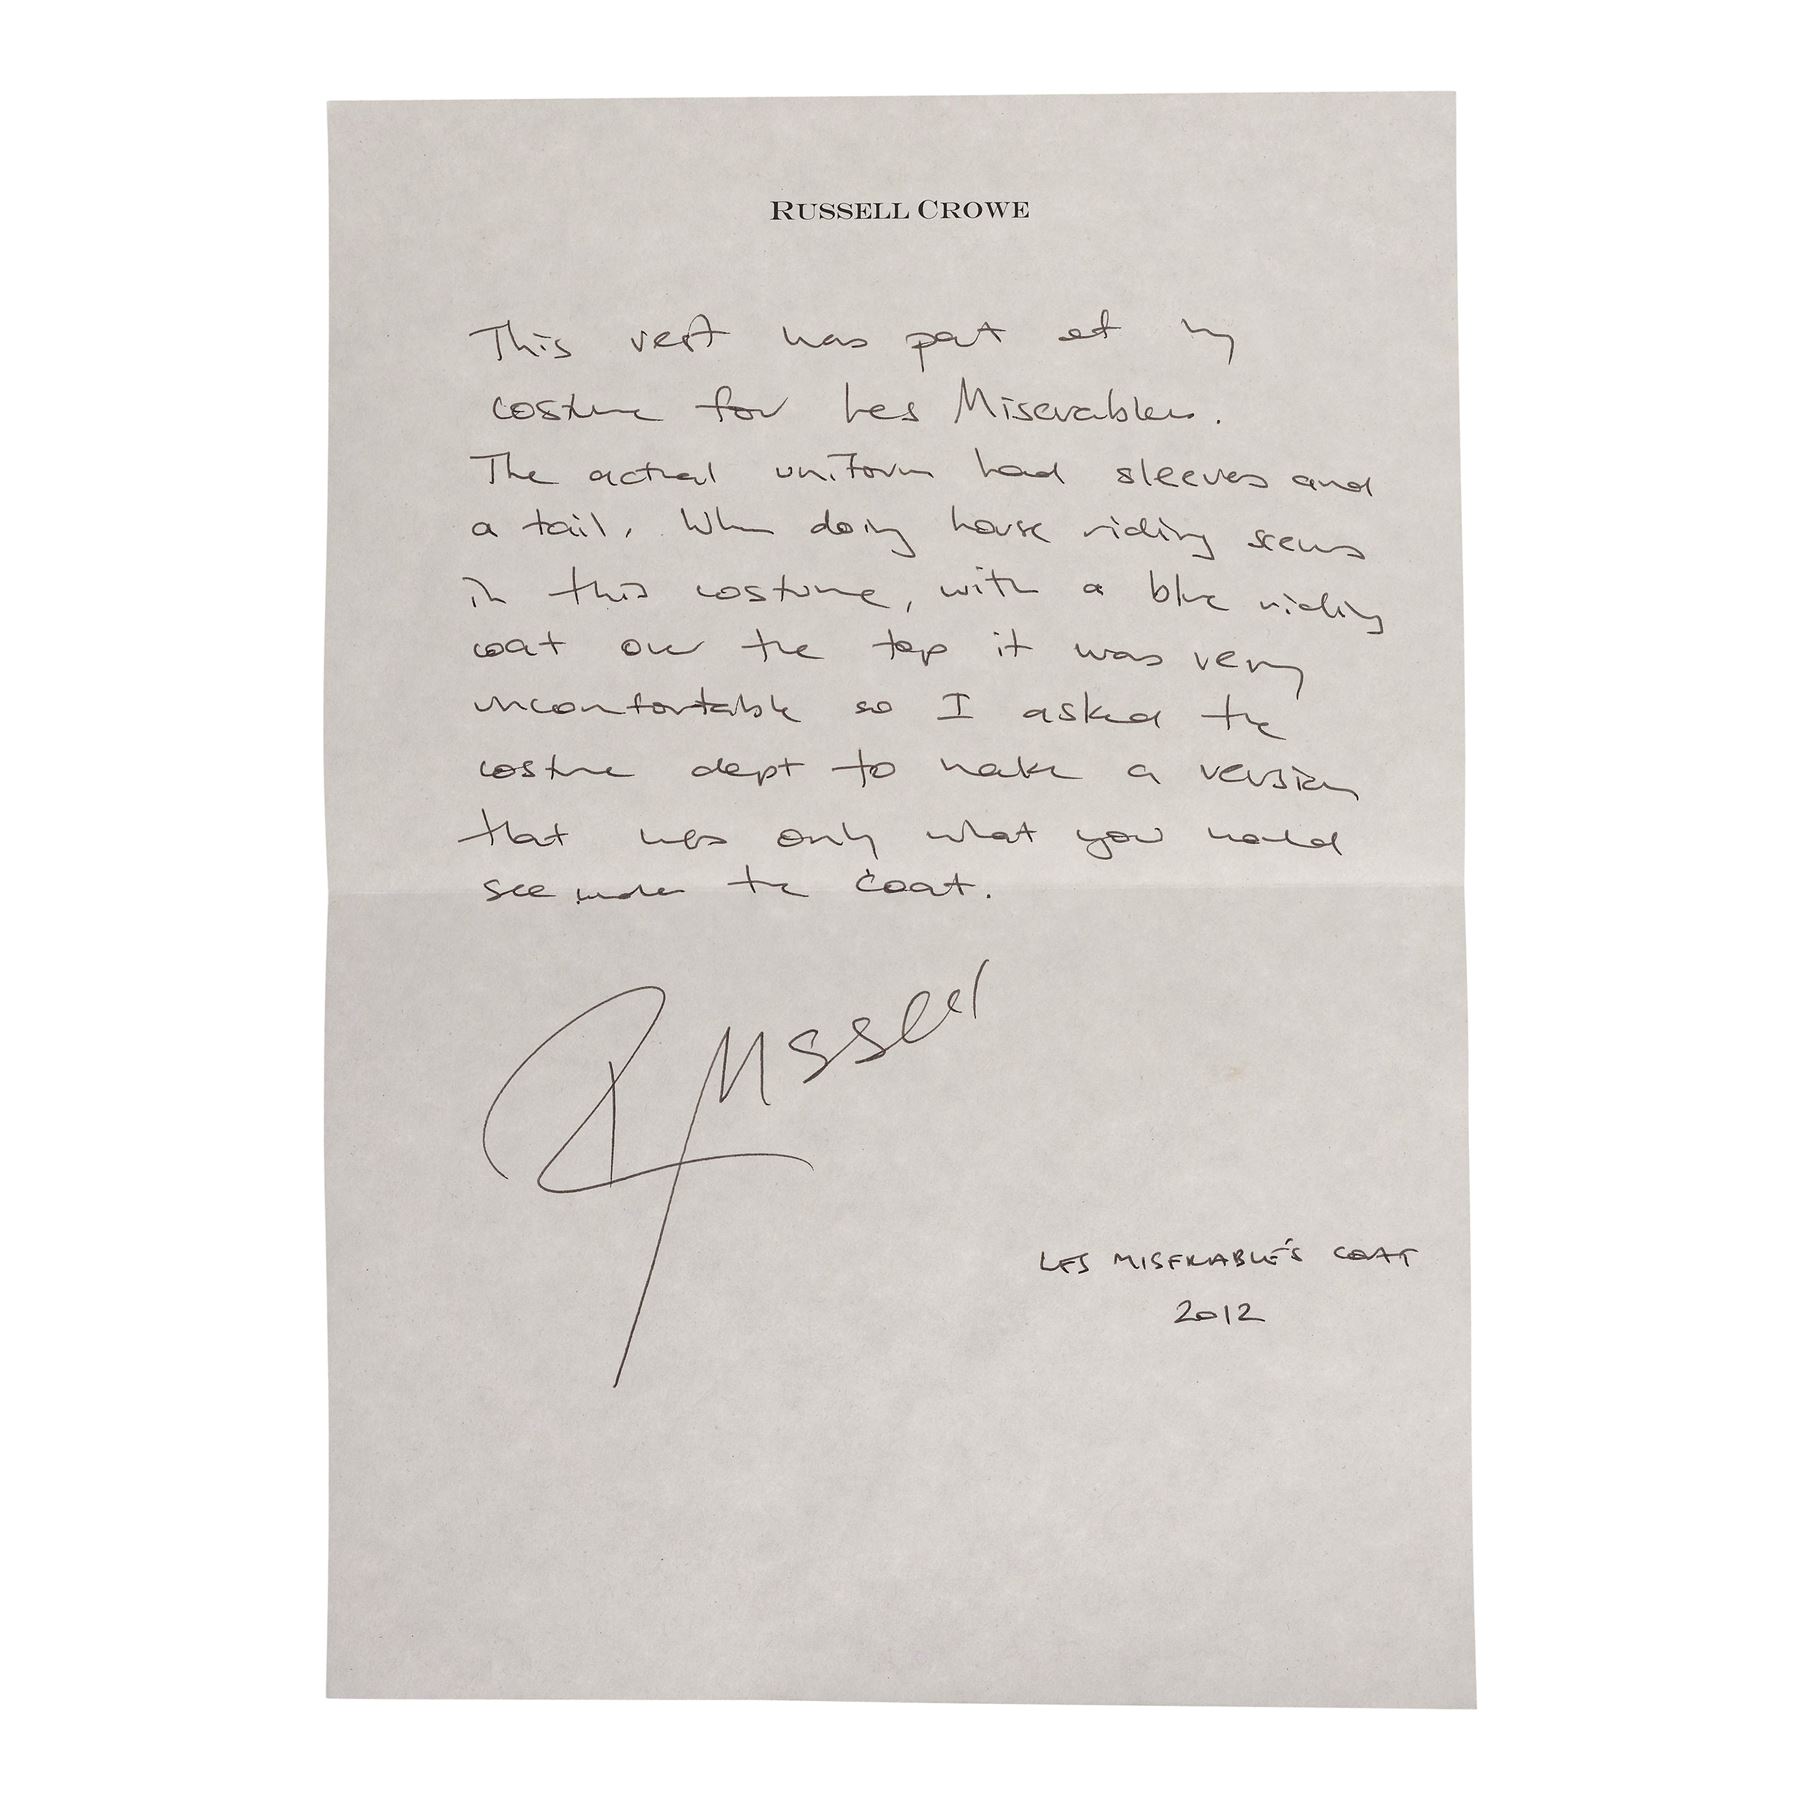 RUSSELL CROWE
This vest was part of my
costume for Les Miserables.
The actual uniform had sleeves and
a tail. When doing horse riding scenes
in this costume, with a blue riding
coat over the top it was very
uncomfortable so I asked the
costume dept to make a version
that was only what you would
see under the coat.
Russell
LES MISERABLE'S COAT
2012